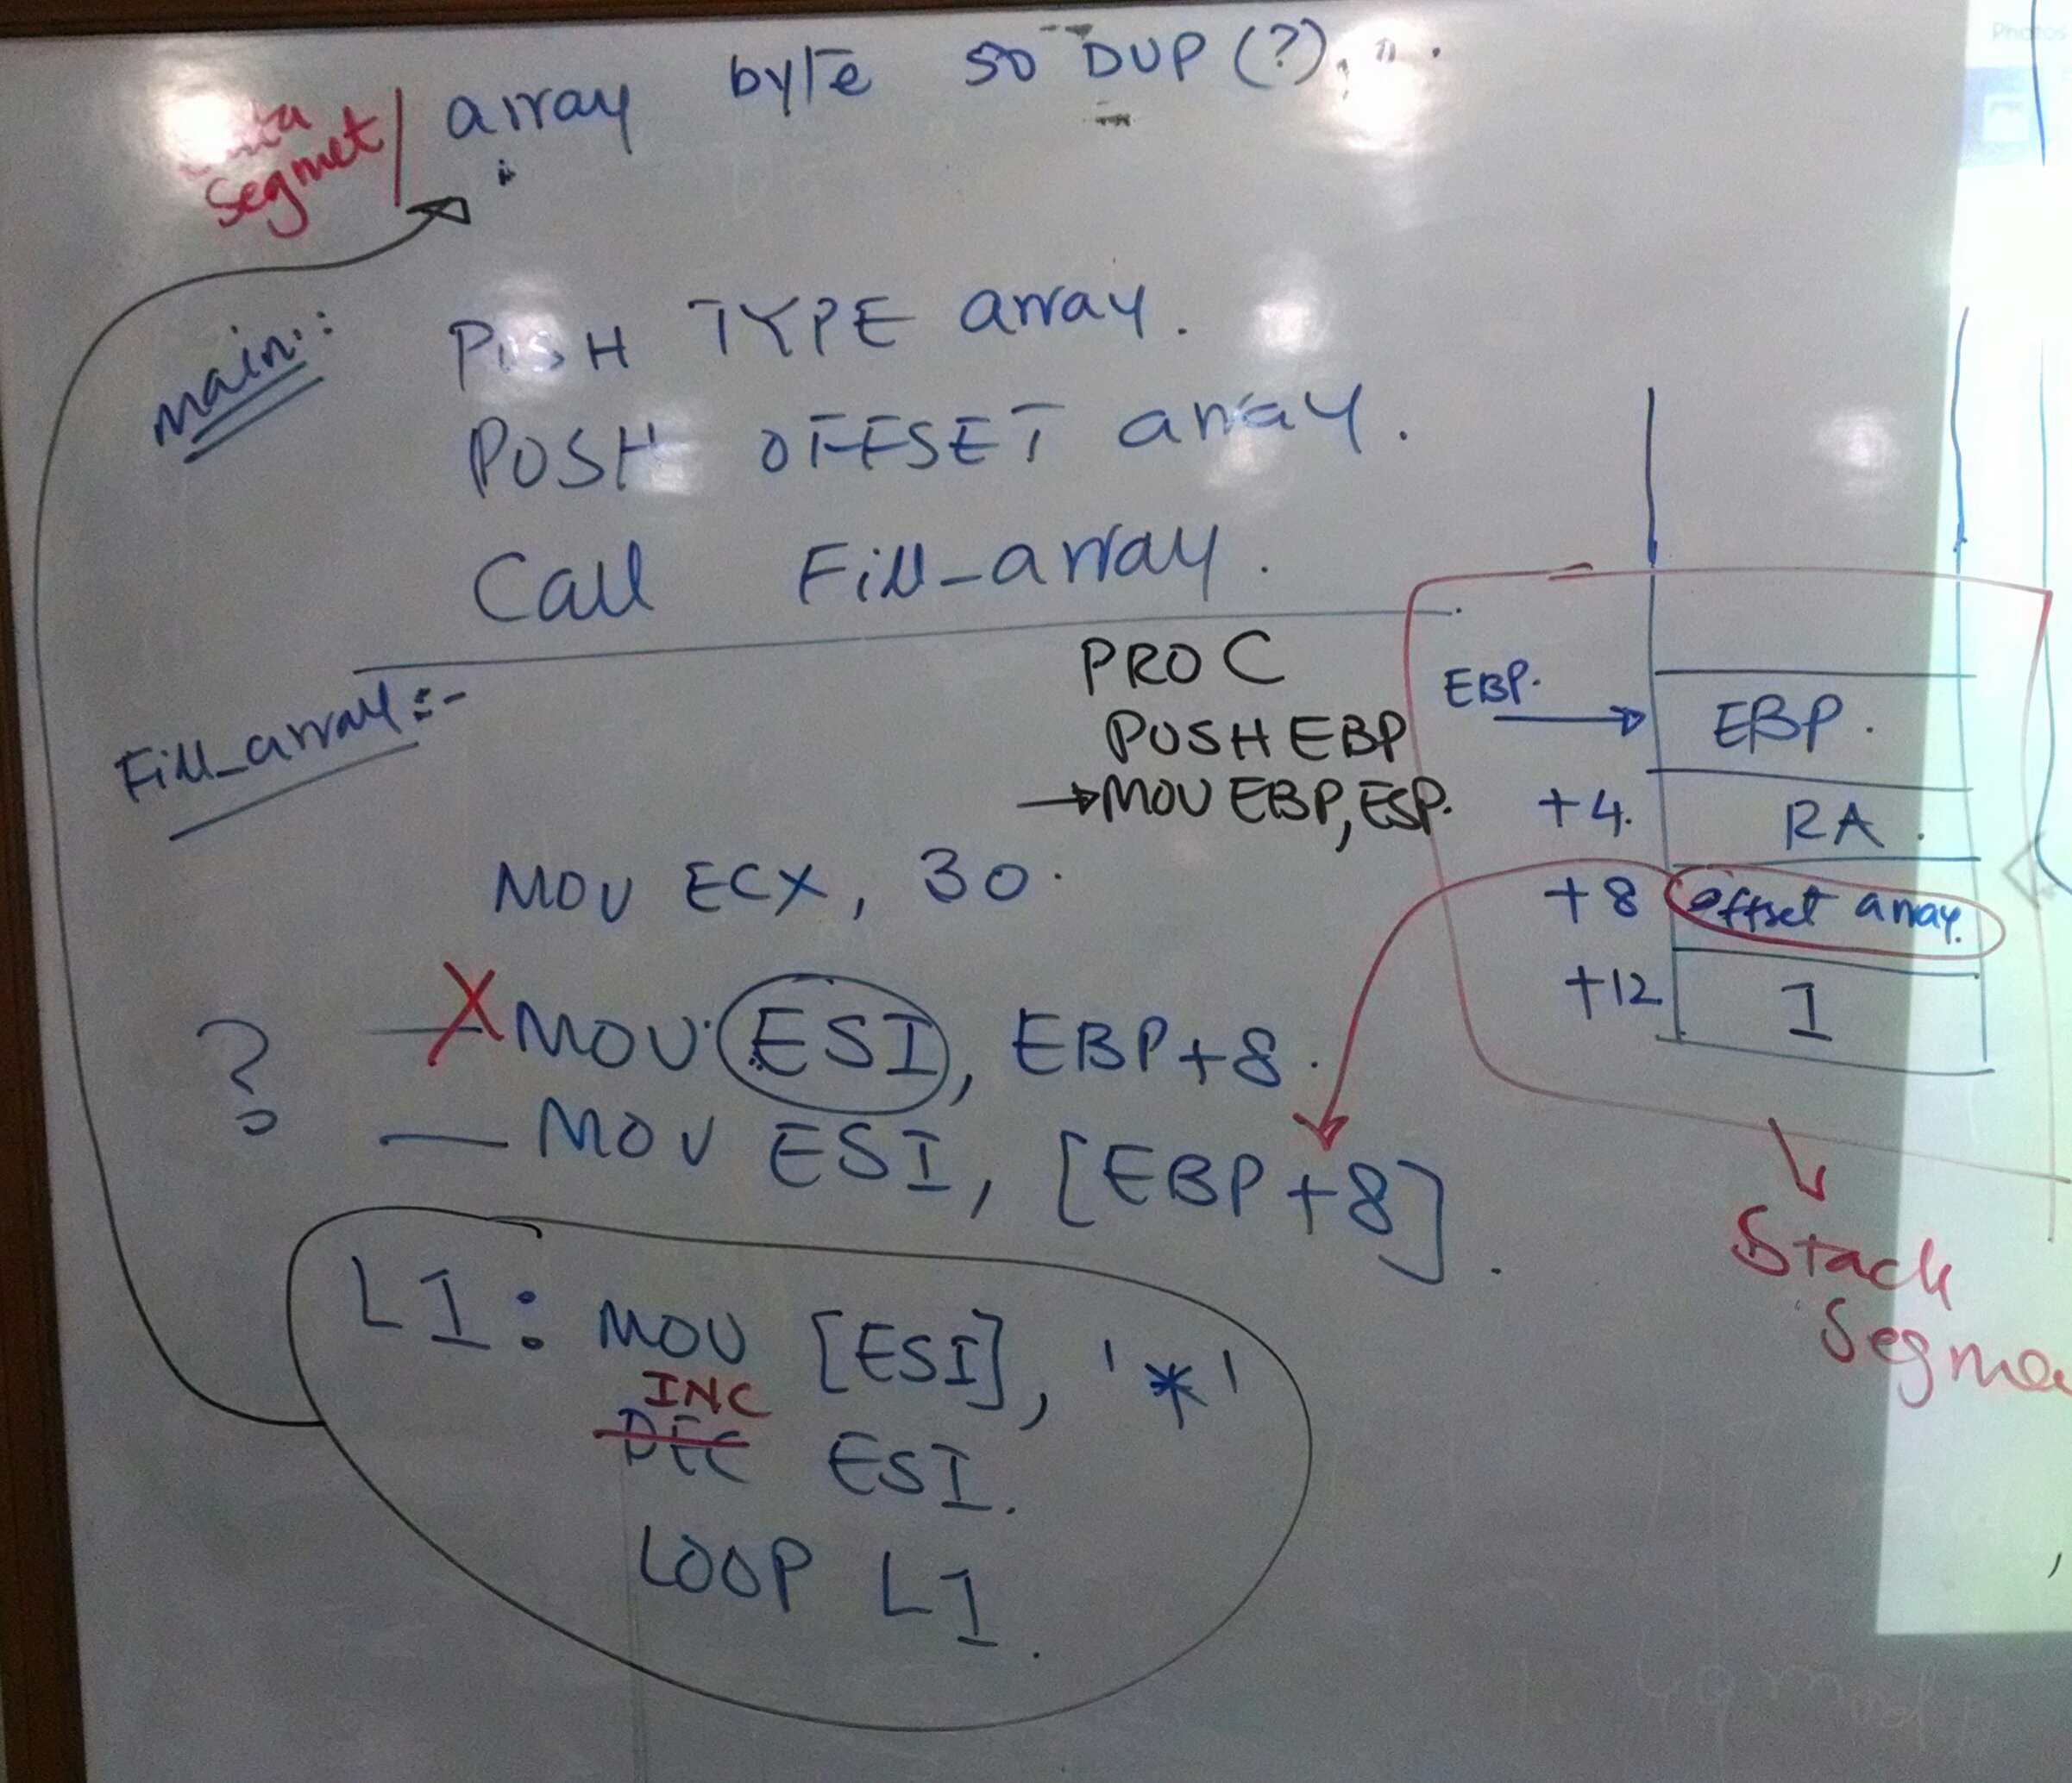 array byte 50 DUP (?)
Segmet
main:
PUSH TYPE array.
PUSH OFFSET array.
Call Fill_array.
Fill_array:-
PROC
PUSH EBP
→MOV EBP, ESP.
MOV ECX, 30.
X MOV ESI, EBP+8.
?
— MOV ESI, [EBP+8].
L1: MOV [ESI], '*'
INC
DEC ESI.
LOOP L1.
EBP. → EBP.
+4. RA.
+8 offset array.
+12 1
Stack
Photos